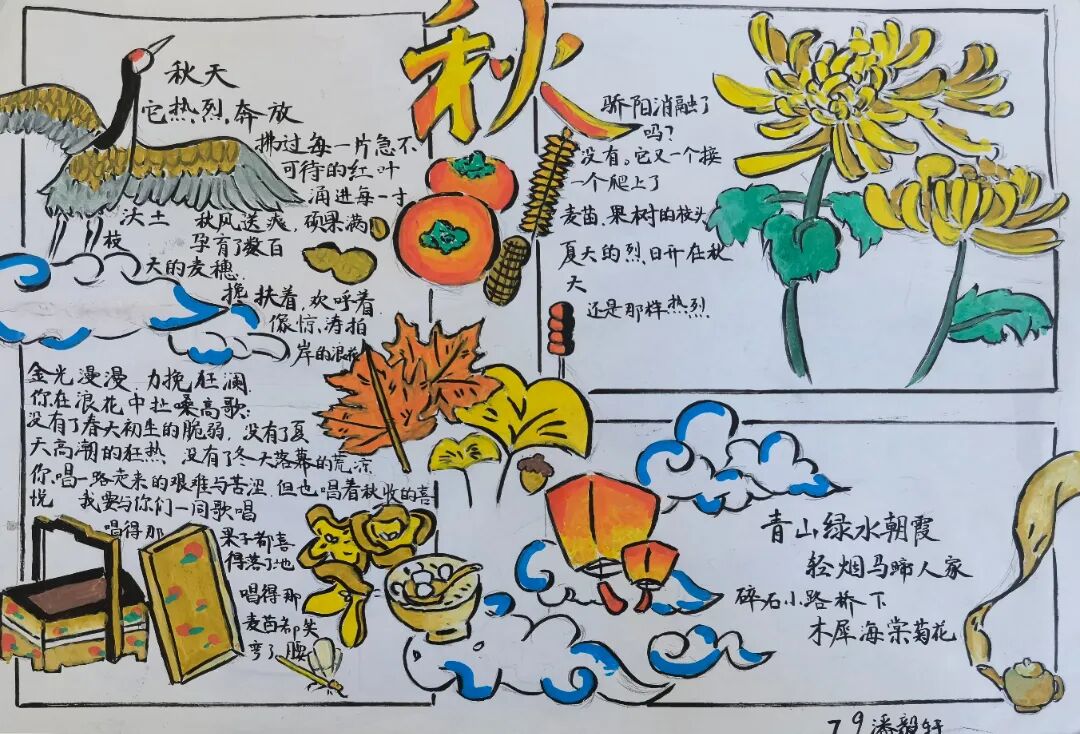 秋
秋天
它热烈、奔放
拂过每一片急不
可待的红叶
涌进每一寸
沃土
秋风送爽，硕果满
枝
孕育了数百
天的麦穗
搀扶着，欢呼着，
像惊涛拍
岸的浪花
金光漫漫 力挽狂澜
你在浪花中扯嗓高歌：
没有了春天初生的脆弱，没有了夏
天高潮的狂热 没有了冬天落幕的荒凉
你唱一路走来的艰难与苦涩，但也唱着秋收的喜
悦 我要与你们一同歌唱
唱得那
果子都喜
得落了地
唱得那
麦苗都笑
弯了腰
骄阳消融了
吗？
没有。它又一个接
一个爬上了
麦苗、果树的枝头
夏天的烈日开在秋
天
还是那样热烈
青山绿水朝霞
轻烟马蹄人家
碎石小路桥下
木犀海棠菊花
7 9 潘毅轩